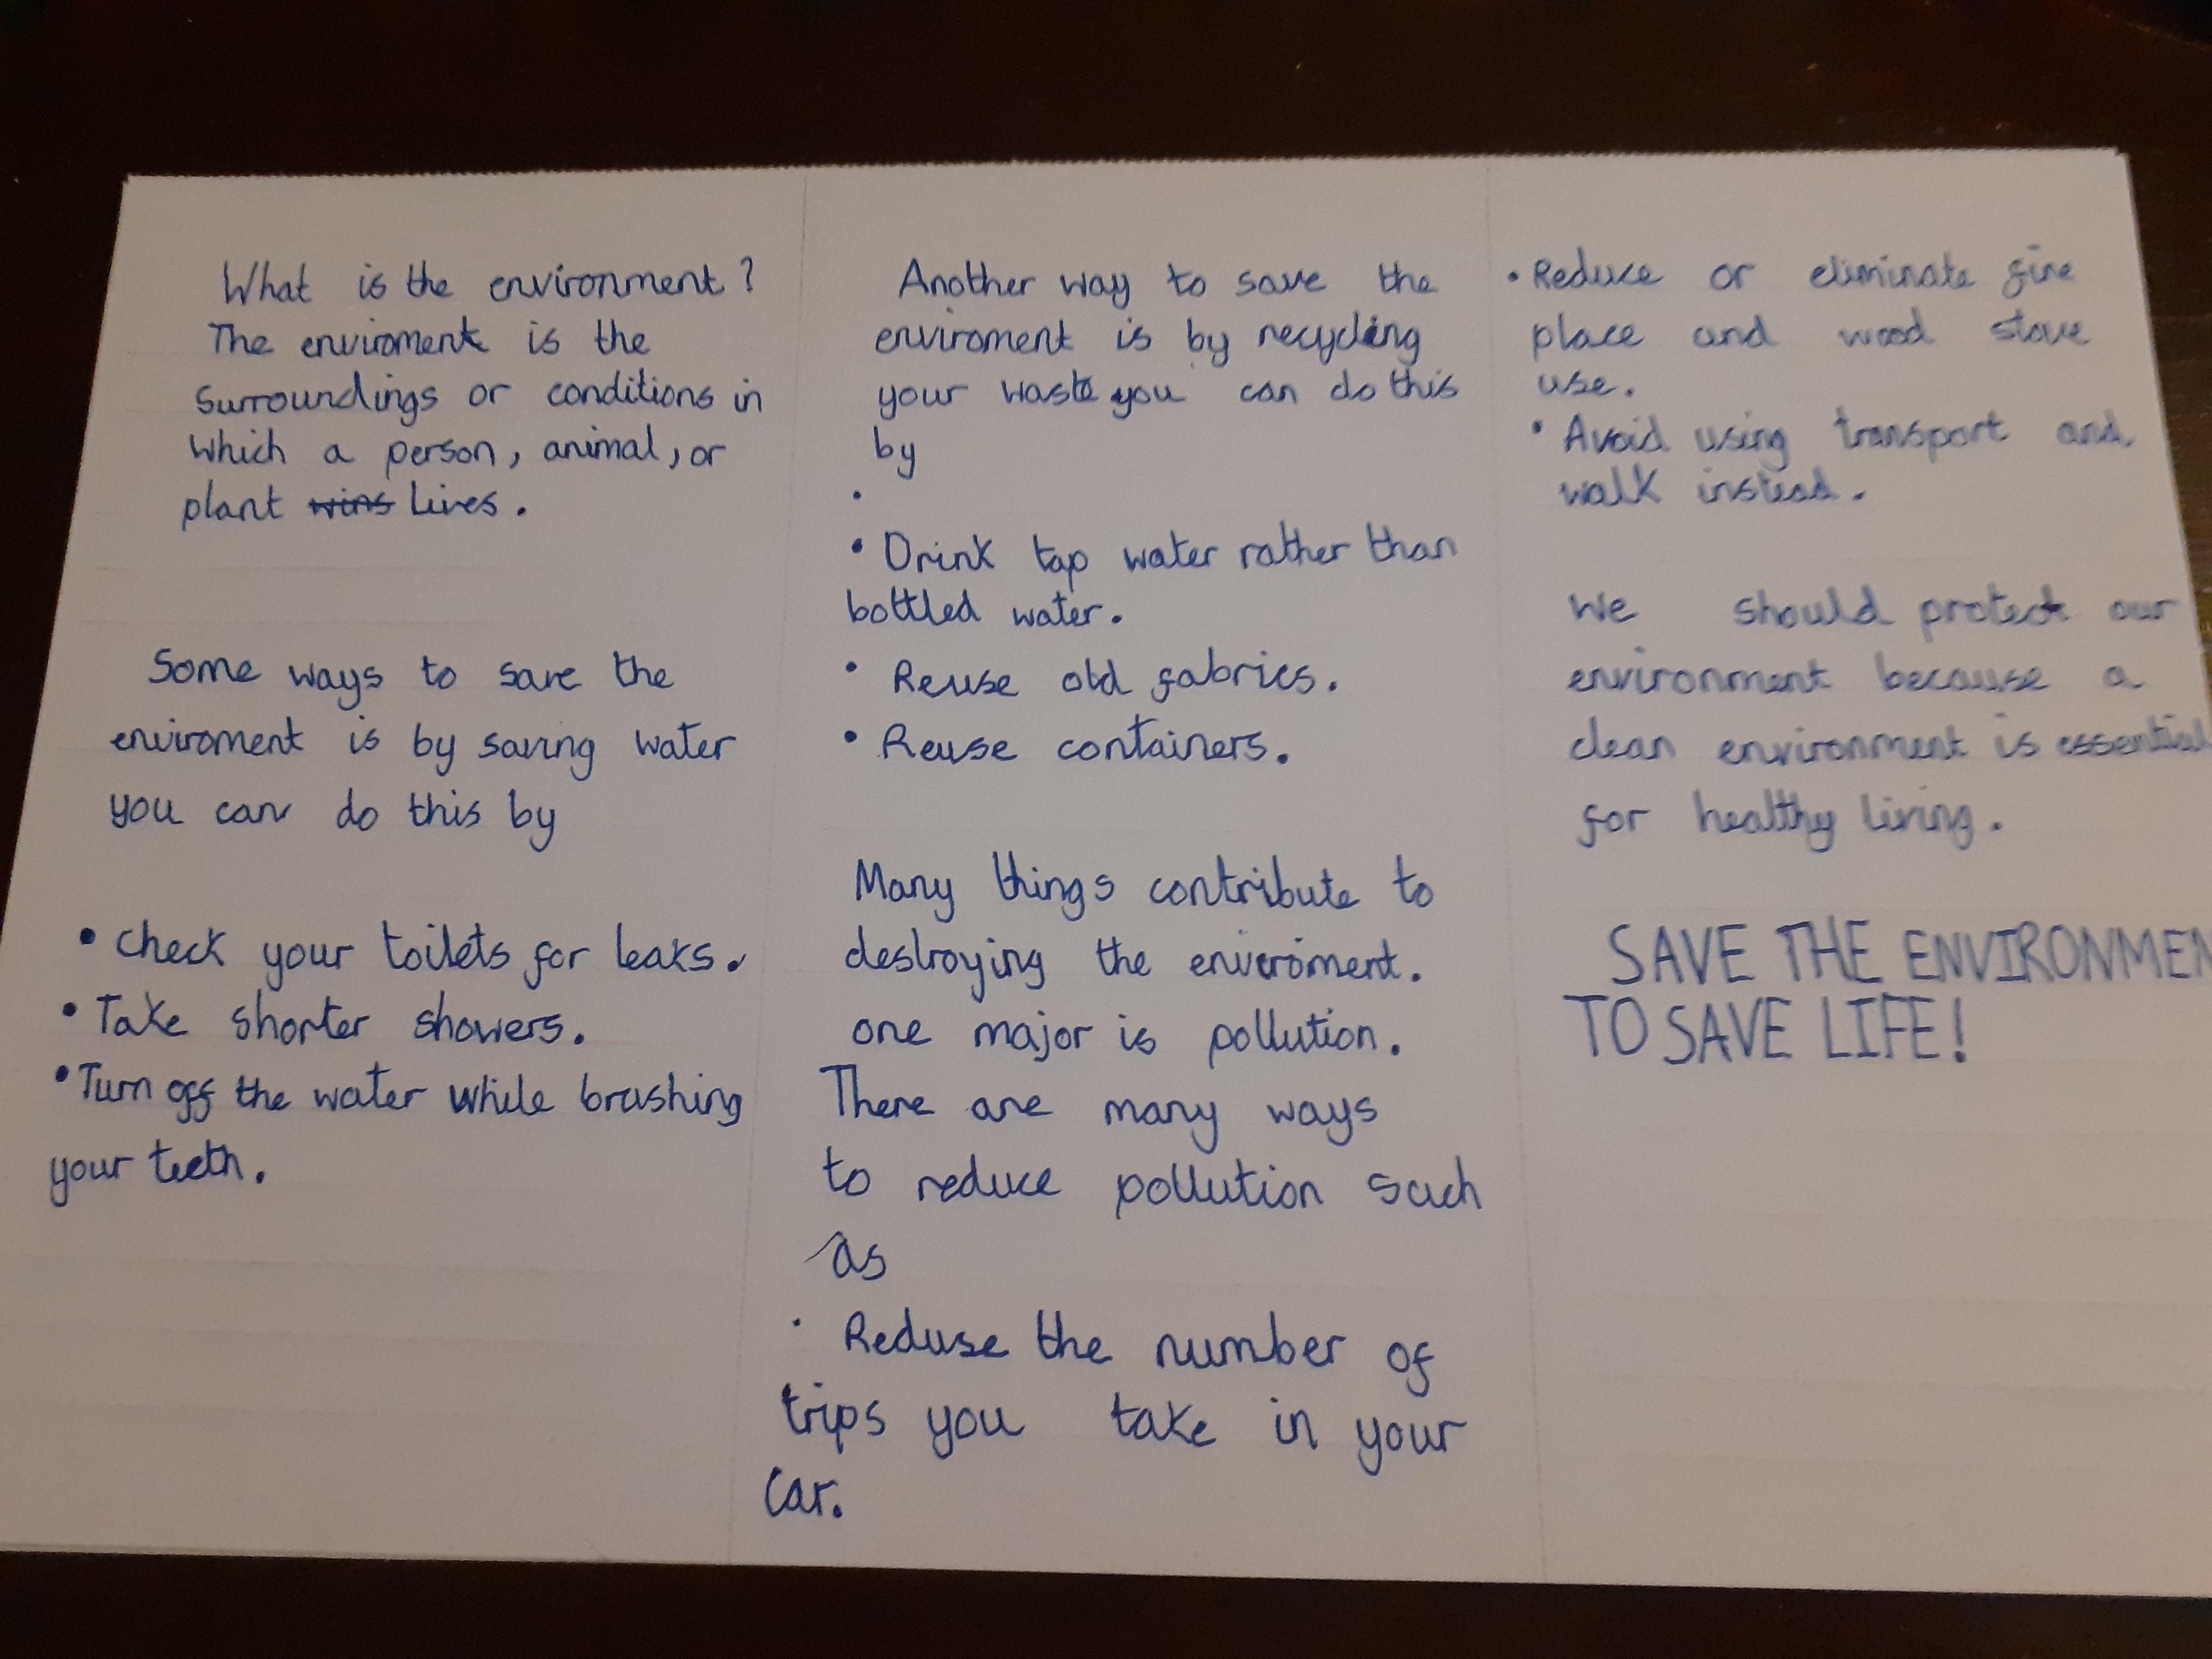 What is the environment?
The enviroment is the
surroundings or conditions in
which a person, animal, or
plant wins lives.
Some ways to save the
enviroment is by saving water
you can do this by
• Check your toilets for leaks.
• Take shorter showers.
• Turn off the water while brushing
your teeth.
Another way to save the
enviroment is by recycling
your waste you can do this
by
•
• Drink tap water rather than
bottled water.
• Reuse old fabrics.
• Reuse containers.
Many things contribute to
destroying the enveroment.
one major is pollution.
There are many ways
to reduce pollution such
as
• Reduse the number of
trips you take in your
car.
• Reduce or eliminate fire
place and wood stove
use.
• Avoid using transport and
walk instead.
We should protect our
environment because a
clean environment is essential
for healthy living.
SAVE THE ENVIRONMEN
TO SAVE LIFE!